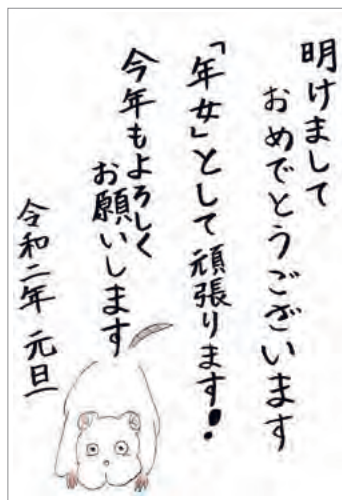 明けまして
おめでとうございます
「年女」として頑張ります!
今年もよろしく
お願いします
令和二年 元旦